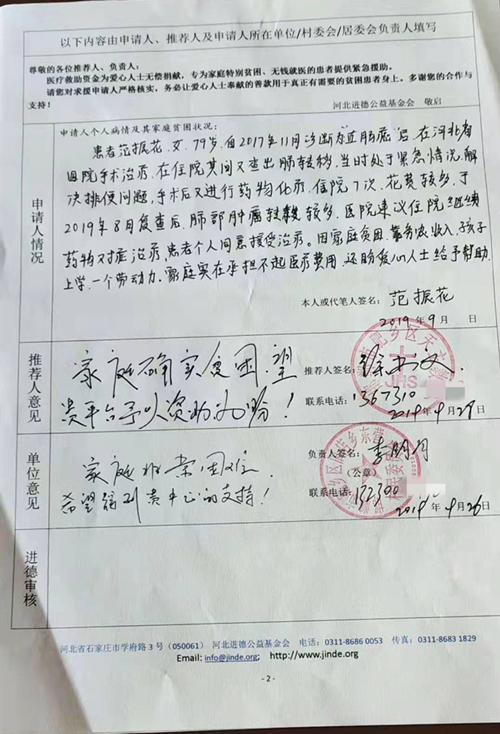 以下内容由申请人、推荐人及申请人所在单位/村委会/居委会负责人填写
尊敬的各位推荐人、负责人：
医疗救助资金为爱心人士无偿捐献，专为家庭特别贫困、无钱就医的患者提供紧急援助。
请您对求援申请人严格核实，务必让爱心人士奉献的善款用于真正有需要的贫困患者身上。多谢您的合作与
支持！
河北进德公益基金会 敬启
申请人情况
申请人个人病情及其家庭贫困状况：
患者范振花，女，79岁，自2017年11月诊断为直肠癌后，在河北省
医院手术治疗，在住院其间又查出肺转移，当时处于紧急情况，解
决排便问题，手术后又进行药物化疗，住院7次，花费较多，于
2019年8月复查后，肺部肿瘤转移较多，医院建议住院继续
药物对症治疗，患者个人同意接受治疗。因家庭贫困，靠务农收入，孩子
上学，一个劳动力，家庭实在承担不起医疗费用，还盼爱心人士给予帮助
本人或代笔人签名：范振花
2019年9月 日
推荐人意见
家庭确实贫困，望
贵平台予以资助为盼！
推荐人签名：
联系电话：1367310
2019年9月27日
单位意见
家庭非常困难
希望得到贵中心的支持！
负责人签名：李明月
（公章）
联系电话：132300
2019年9月26
进德审核
河北省石家庄市学府路3号（050061）河北进德公益基金会 电话：0311-8686 0053 传真：0311-8683 1829
Email: info@jinde.org; http://www.jinde.org
- 2 -